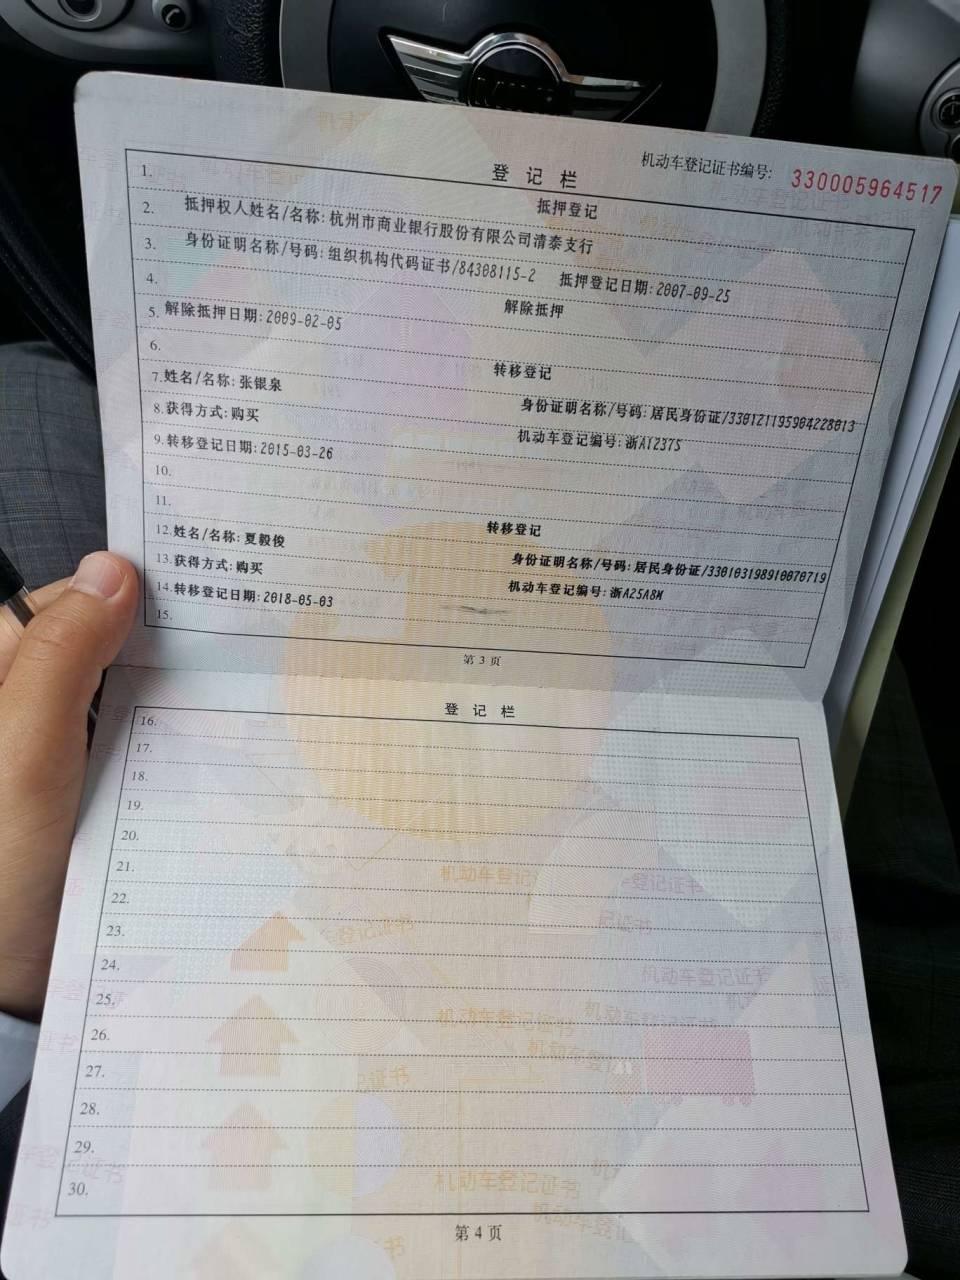 机动车登记证书编号: 330005964517
登记栏
1. 抵押登记
2. 抵押权人姓名/名称: 杭州市商业银行股份有限公司清泰支行
3. 身份证明名称/号码: 组织机构代码证书/84308115-2 抵押登记日期: 2007-09-25
4. 解除抵押
5. 解除抵押日期: 2009-02-05
6. 转移登记
7. 姓名/名称: 张银泉 身份证明名称/号码: 居民身份证/330121195904228013
8. 获得方式: 购买 机动车登记编号: 浙A1237S
9. 转移登记日期: 2015-03-26
10.
11. 转移登记
12. 姓名/名称: 夏毅俊 身份证明名称/号码: 居民身份证/330103198910070719
13. 获得方式: 购买 机动车登记编号: 浙A25A8M
14. 转移登记日期: 2018-05-03
15.
第 3 页
登记栏
16.
17.
18.
19.
20.
21.
22.
23.
24.
25.
26.
27.
28.
29.
30.
第 4 页